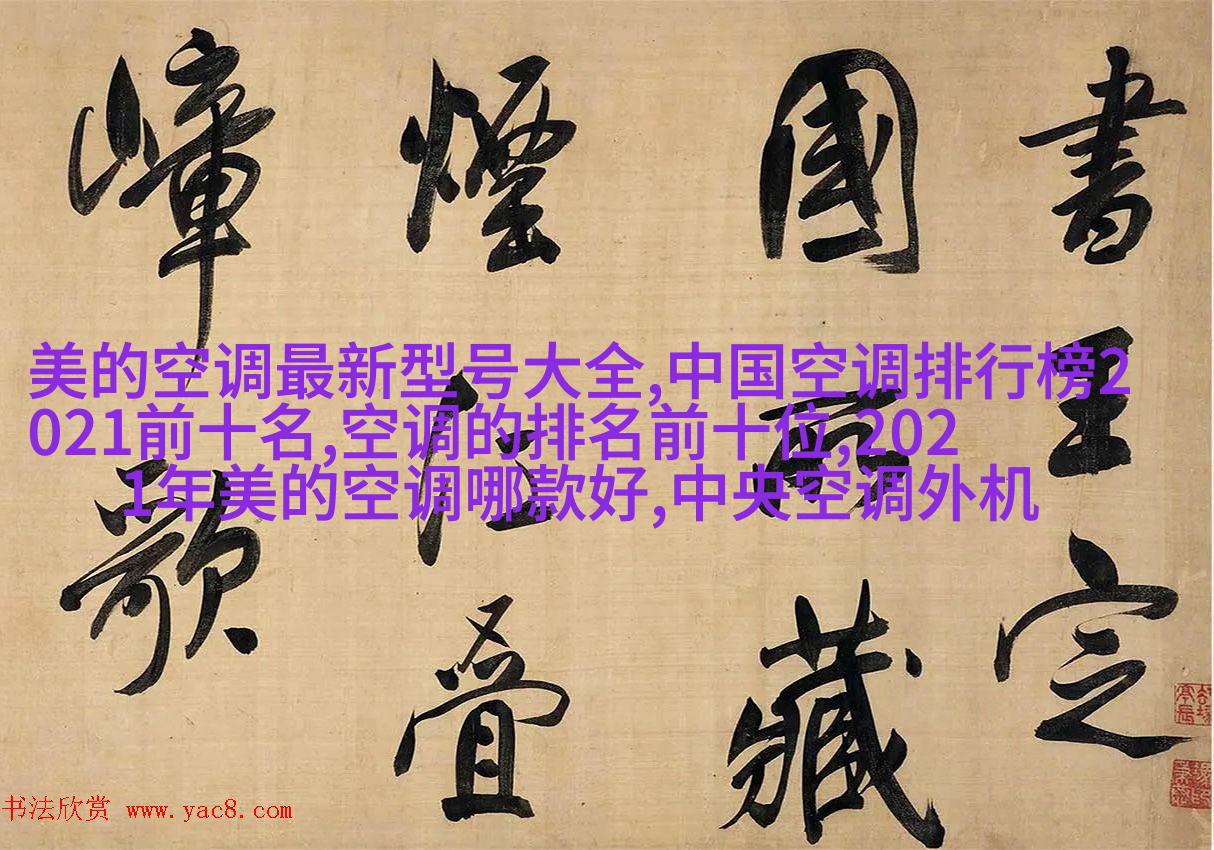 書王定
國所藏
煙江疊
嶂歌
美的空调最新型号大全,中国空调排行榜2
021前十名,空调的排名前十位,202
1年美的空调哪款好,中央空调外机
书法欣赏 www.yac8.com